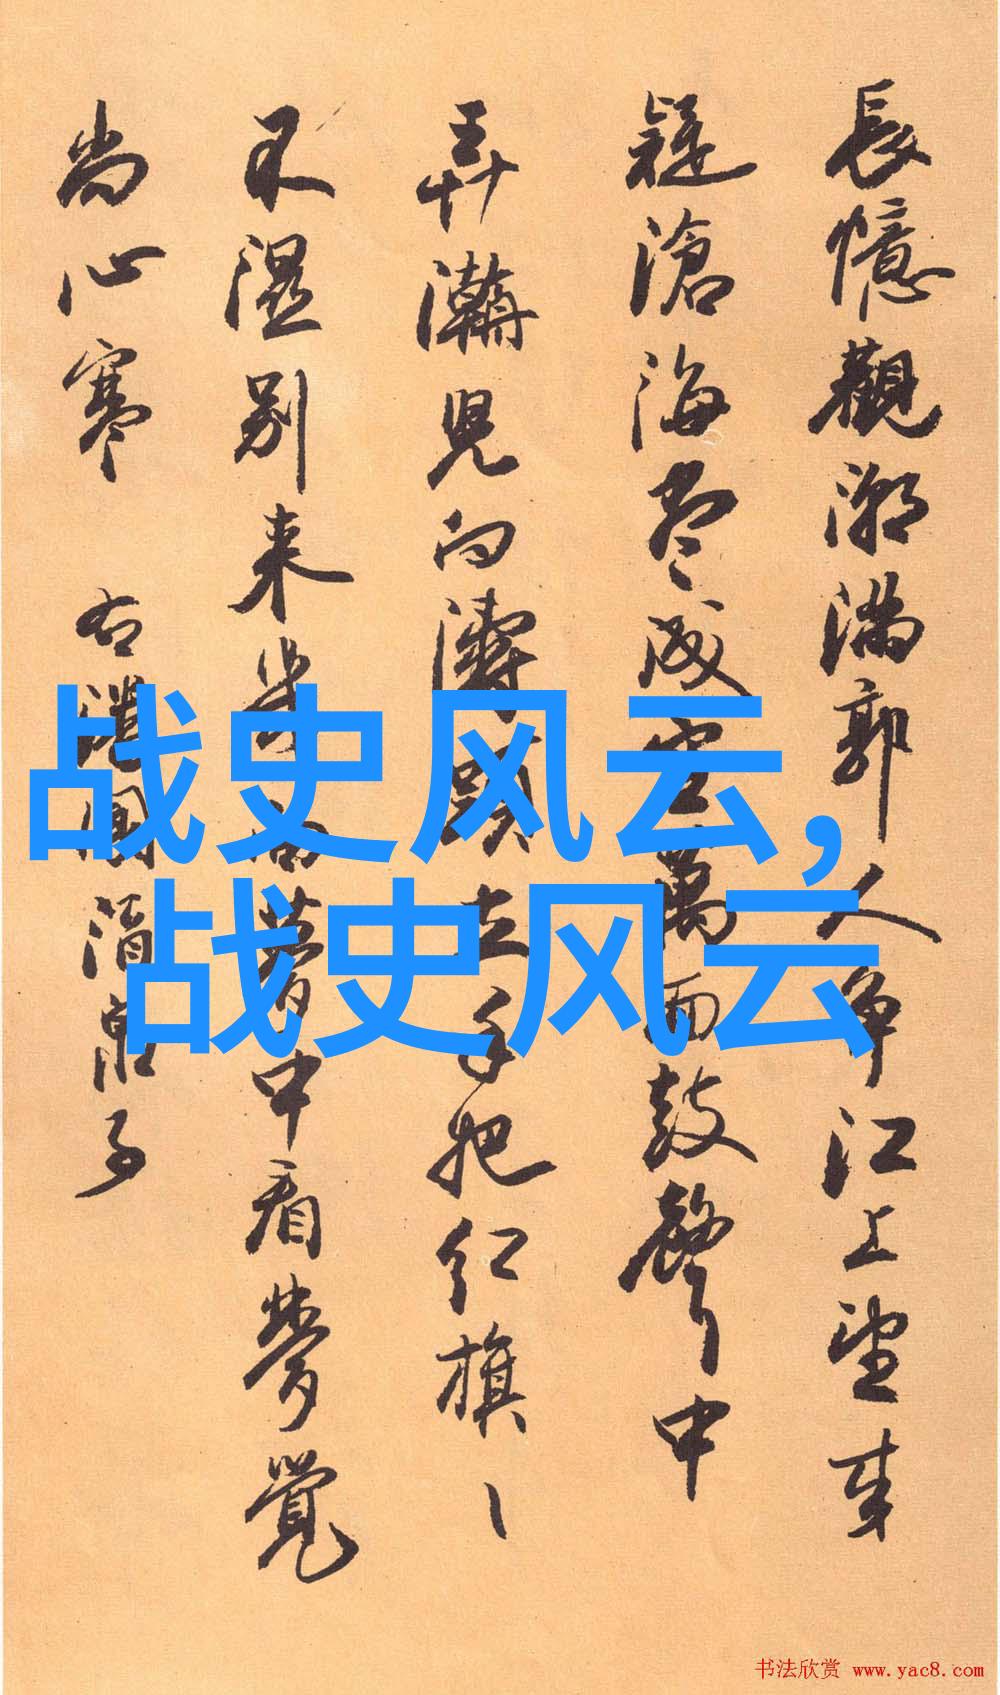 長憶觀潮满郭人争江上望来
疑滄海尽成空萬面鼓聲中
弄潮兒向濤頭立手把红旗ヽ
不湿别来幾向夢中看夢覺
尚心寒 右潘閬酒泉子
战史风云,
战史风云
书法欣赏 www.yac8.com